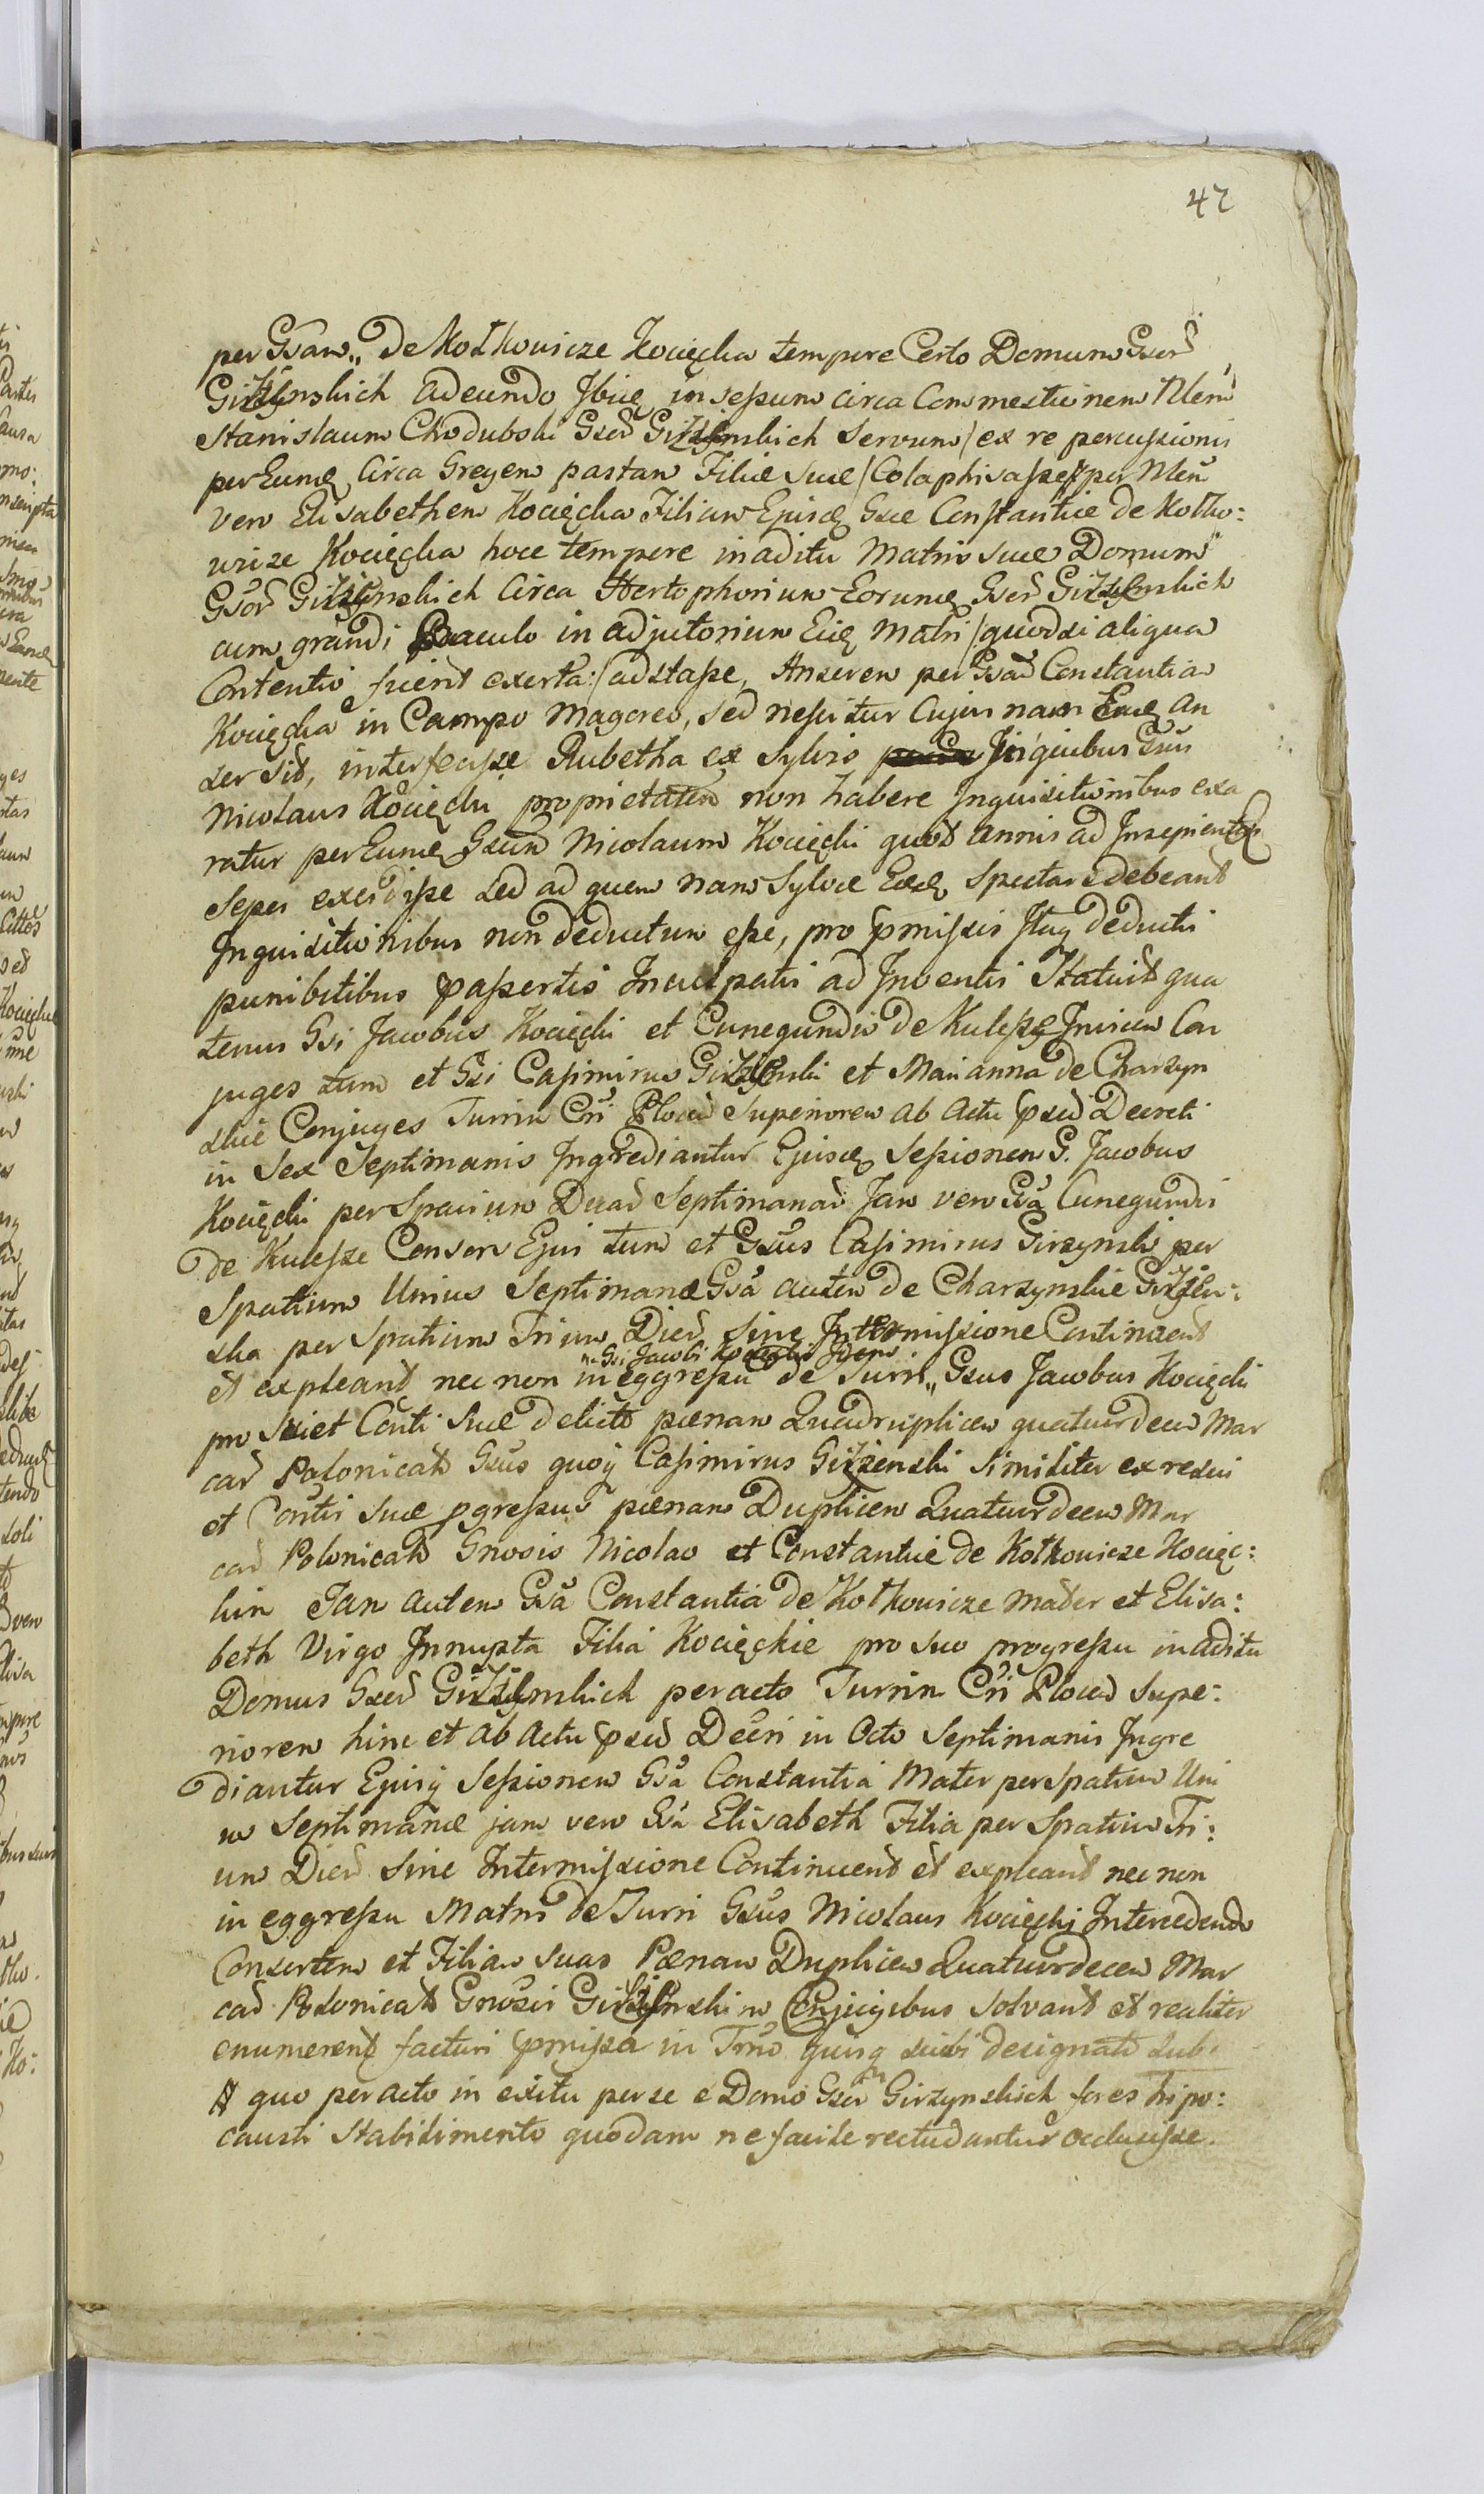 42
per Gsam„ de Kotkowicze Kocięcka tempore Certo Domum Gser
Girzynskich adeundo Ibiq in sessum circa Commestionem Nlem
Stanislaum Chodubski Gser Girzynskich Servum / ex re percussionis
per Eumq Circa Gregem pastam Filiæ Suæ / Colaphisasse, per Nlem
vero Elisabethem Kocięcka Filiam Ejusq Gsæ Constantiæ de Kotko:
wicze Kocięcka hoce tempore in aditu Matris suæ Domum
Gsor Girzynskich Circa Hertophorium Eorumq Gser Girzynskich
cum grandi Baculo in adjutorium Eiq Matri / quodsi aliqua
Contentio fuerit exerta: / adstasse, Anserem per Gsad Constantia
Kocięcka in Campo Magereo, sed nescitur Cujus nam Eueq An
ser sit, interfecisse Rubetha ex Sylvis In quibus Gsus
Nicolaus Kocięcki proprietatem non habere Inquisitionibus exa
ratur per Eumq Gsum Nicolaum Kocięcki quot annis ad Insepientas
Sepes excidisse sed ad quem nam Sylvæ Eædq Spectare debeant
Inquisitionibus non deductum esse, pro pmissis Itaq deductis
punibilibus passertis Inculpatis ad Inventis Statuit qua
tenus Gsi Jacobus Kocięcki et Cunegundis de Kulesze Invicem Con
juges tum et Gsi Casimirus Girzynski et Marianna de Charzyn
skie Conjuges Turrim Cri Plocen Superiorem ab actu psed Decreti
in Sex Septimanis Ingrediantur Ejusq Sessionem G. Jacobus
Kocięcki per Spacium Duar Septimanar Jam vero Gsa Cunegundis
de Kulesze Consors Ejus tum et Gsus Casimirus Girzynski per
Spatium Unius Septimanæ Gsa autem de Charzynskie Girzen:
ska per Spatium Trium Dier Sine Intermissione Continuent
ni Gsi Jacobi Kocięcki Idem
et expleant nec non in eggressu de Turri„ Gsus Jacobus Kocięcki
pro Sui et Conti Suæ delicto pænam Quadruplicem quatuordecem Mar
car Polonicat Gsus quoq Casimirus Girzenski Similiter ex re sui
et Contis suæ pgressus pænam Duplicem Quatuordecem Mar
car Polonicat Gnosis Nicolao et Constantiæ de Kotkowicze Kocięc:
kim Jam autem Gsa Constantia de Kotkowicze Mater et Elisa:
beth Virgo Innupta Filia Kocięckie pro suo progressu in aditu
Domus Gser Girzynskich peracto Turrim Cri Plocen Supe:
riorem hinc et ab actu psed Decri in Octo Septimanis Ingre
diantur Ejusq Sessionem Gsa Constantia Mater per Spatium Uni
us Septimanæ jam vero Gsa Elisabeth Filia per Spatium Tri:
um Dier Sine Intermissione Continuent et expleant nec non
in eggressu Matris de Turri Gsus Nicolaus Kocięcki Intercedendo
Consortem et Filiam suas Pænam Duplicem Quatuordecem Mar
car Polonicat Gnosis Girzynskim Conjugibus solvant et realiter
enumerent facturi pmissa in Tmo quisq suibi designato sub.
quo peracto in exitu per se e Domo Gser Girzynskich fores hipo:
causti Stabilimento quodam ne facile rectudantur occlusisse.